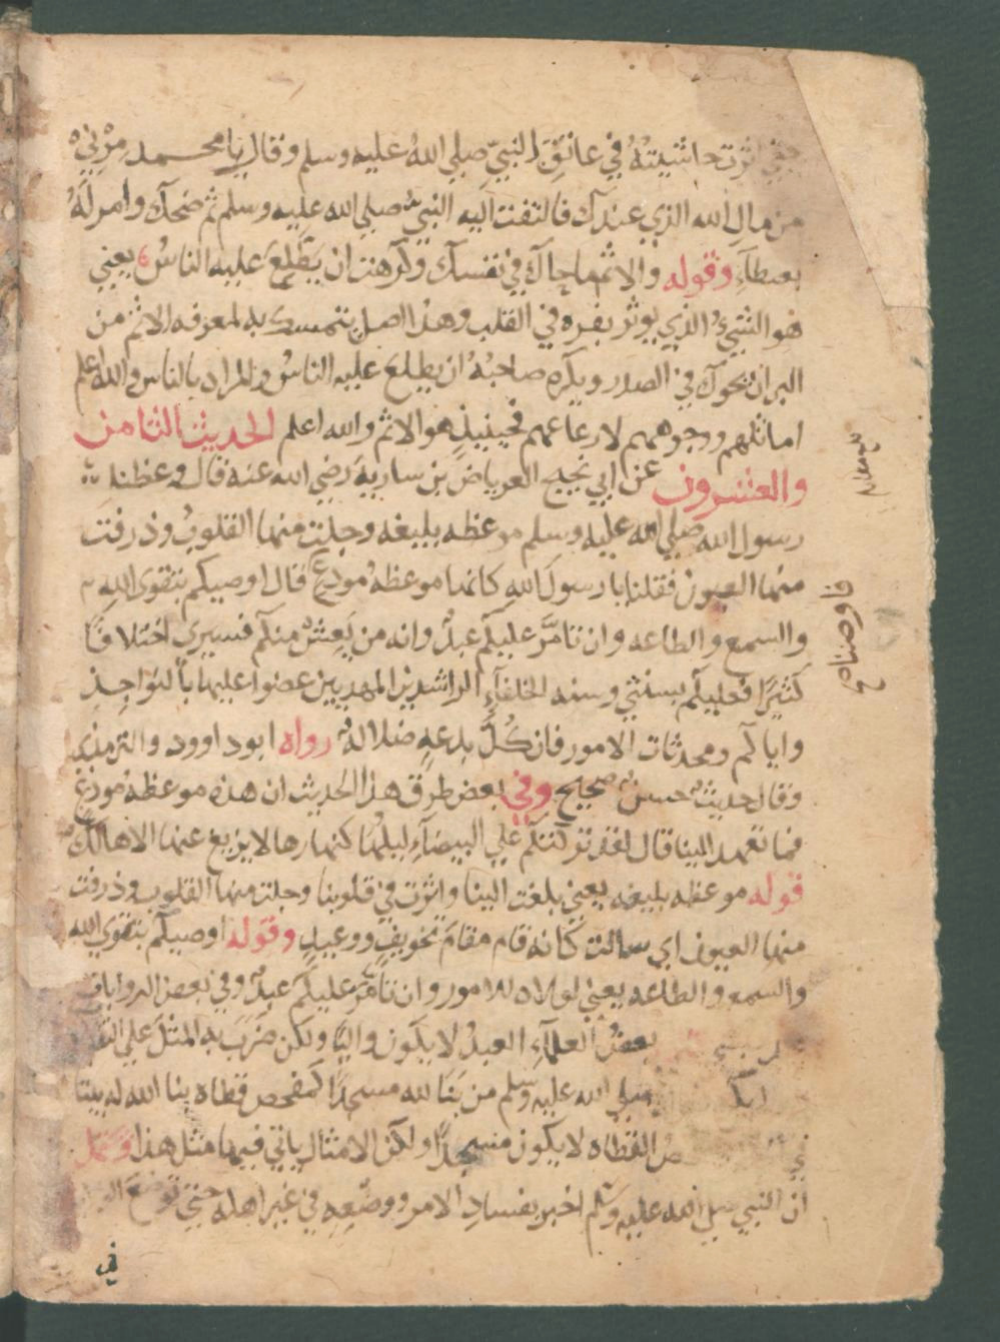 اثرت حاشيته في عاتق النبي صلي الله عليه وسلم وقال يا محمد مرلي
من مال الله الذي عندك فالتفت اليه النبي صلي الله عليه وسلم ثم ضحك وامر له
بعطاء وقوله والاثم ماحاك في نفسك وكرهت ان يطلع عليه الناس يعني
هو الشيء الذي يوثر نفره في القلب وهذا اصل يتمسك به لمعرفة الاثم من
البر ان يحوك في الصدر ويكره صاحبه ان يطلع عليه الناس والمراد بالناس والله اعلم
اماثلهم ووجوههم لا رعاعهم فحينيذ هو الاثم والله اعلم الحديث الثامن
والعشرون عن ابي نجيح العرباض بن سارية رضي الله عنه قال وعظنا
رسول الله صلي الله عليه وسلم موعظه بليغه وجلت منها القلوب وذرفت
منها العيون فقلنا يا رسول الله كانها موعظة مودع قال اوصيكم بتقوى الله
فاوصناه
والسمع والطاعه وان تامر عليكم عبد وانه من يعش منكم فسيرى اختلافا
كثيرا فعليكم بسنتي وسنه الخلفاء الراشدين المهديين عضوا عليها بالنواجذ
واياكم ومحدثات الامور فان كل بدعه ضلالة رواه ابوداوود والترمذي
وقال حديث حسن صحيح وفي بعض طرق هذا الحديث ان هذه موعظه مودع
فما تعهد الينا قال لقد تركتكم علي البيضاء ليلها كنهارها لا يزيغ عنها الا هالك
قوله موعظه بليغه يعني بلغت الينا واثرت في قلوبنا وجلت منها القلوب وذرفت
منها العيون اي سالت كانه قام مقام تخويف ووعيد وقوله اوصيكم بتقوى الله
والسمع والطاعه يعني لولاه للامور وان تامر عليكم عبد وفي بعض الروايات
بعض العلماء العبد لا يكون واليا ولكن ضرب به المثل علي
صلي الله عليه وسلم من بنا لله مسجدا كمفحص قطاه بنا الله له بيتا
القطاه لا يكون مسجدا ولكن الامثال ياتي فيها مثل هذا
ان النبي صلي الله عليه وسلم اخبر بفساد الامر ووضعه في غير اهله حتي توضع
في